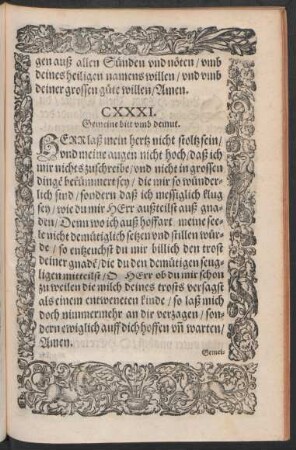 gen auß allen Sünden vnd nöten / vmb
deines heiligen namens willen / vnd vmb
deiner grossen güte willen / Amen.
CXXXI.
Gemeine bitt vmb demut.
HERR laß mein hertz nicht stoltz sein /
vnd meine augen nicht hoch / daß ich
mir nichts zuschreibe / vnd nicht in grossen
dingē bekümmert sey / die mir so wünder-
lich sind / sondern daß ich messiglich klug
sey / wie du mir HErr außteilst auß gna-
den / Denn wo ich auß hoffart meine see-
le nicht demütiglich setzen vnd stillen wür-
de / so entzeuchst du mir billich den trost
deiner gnadē / die du den demütigen seug-
ligen mitteilst / O HErr ob du mir schon
zu weilen die milch deines trosts versagst
als einem entweneten kinde / so laß mich
doch nimmermehr an dir verzagen / son-
dern ewiglich auff dich hoffen vn̄ warten /
Amen.
Gemein